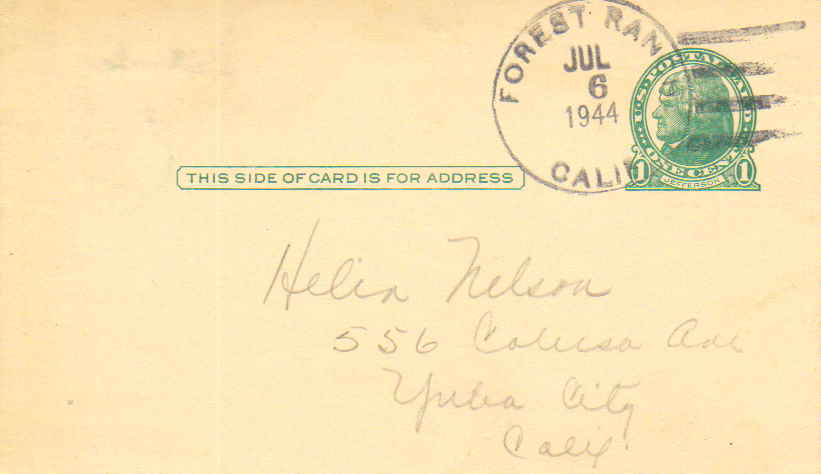 FOREST RAN
JUL
6
1944
CALIF
U.S. POSTAL CARD
ONE CENT
1 JEFFERSON 1
THIS SIDE OF CARD IS FOR ADDRESS
Helen Nelson
556 Colusa Ave
Yuba City
Calif.